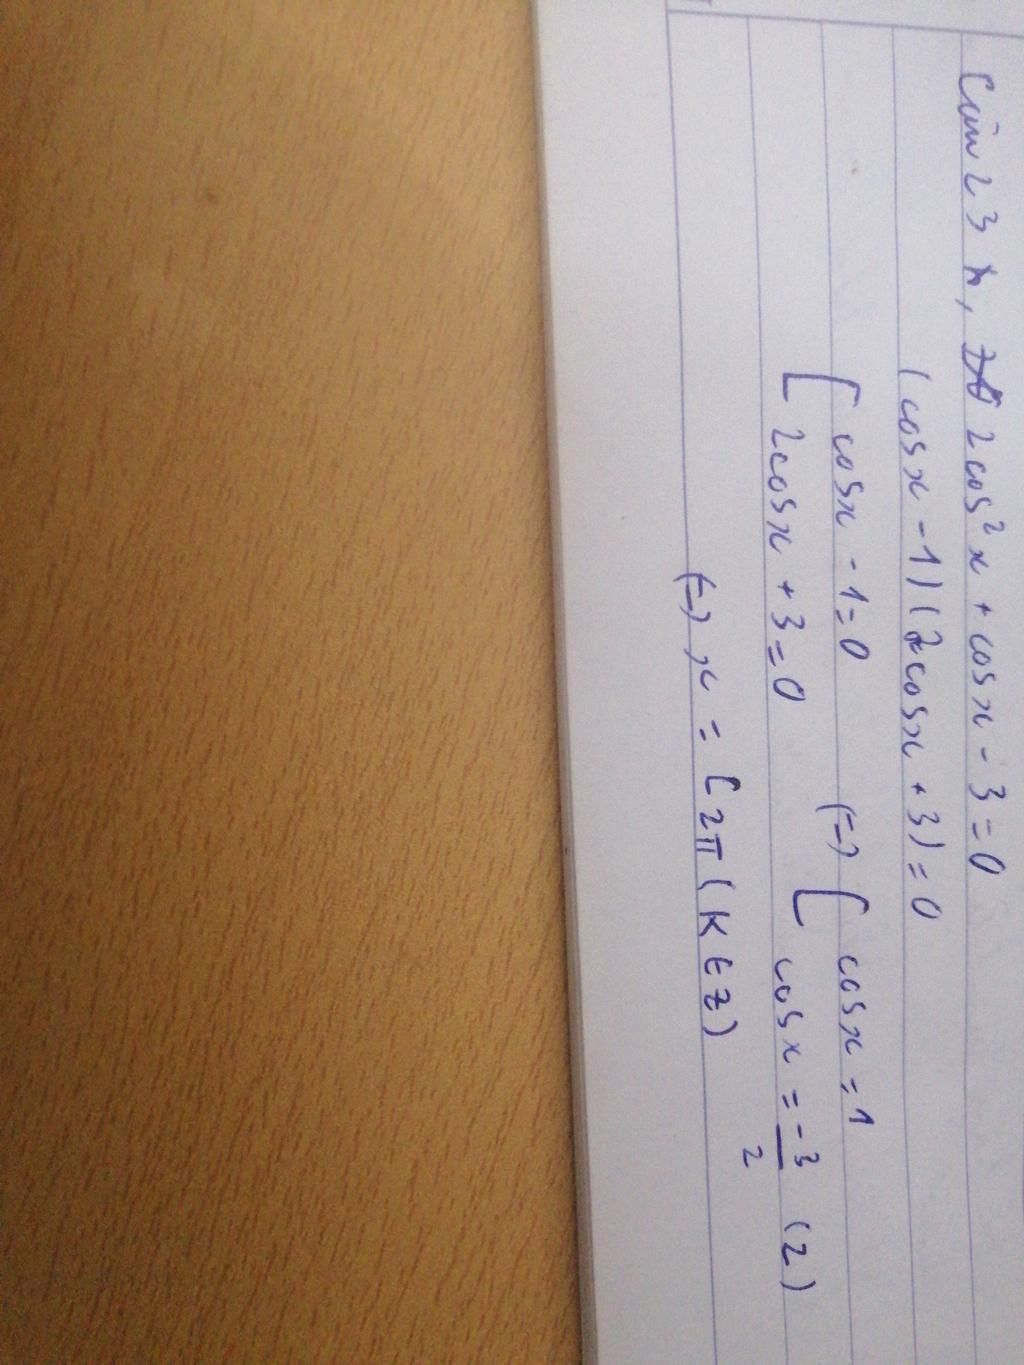 Câu 23 h, 2cos² x + cos x - 3 = 0
(cos x - 1)(2cos x + 3) = 0
[ cos x - 1 = 0 (=) [ cos x = 1
[ 2cos x + 3 = 0 [ cos x = -3/2 (2)
(=) x = [ 2π (K ∈ Z)